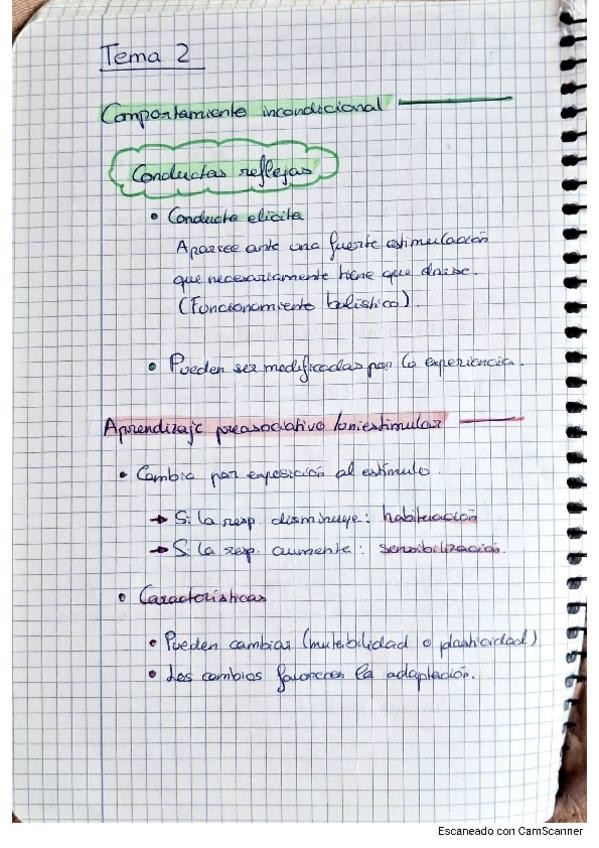 Tema 2
Comportamiento incondicional
Conductas reflejas
• Conducta elicita
Aparece ante una fuerte estimulación
que necesariamente tiene que darse.
(Funcionamiento balístico).
• Pueden ser modificadas por la experiencia.
Aprendizaje preasociativo /uniestimular
• Cambia por exposición al estímulo.
→ Si la resp. disminuye: habituación
→ Si la resp. aumenta: sensibilización.
• Características
• Pueden cambiar (mutabilidad o plasticidad)
• Los cambios favorecen la adaptación.
Escaneado con CamScanner